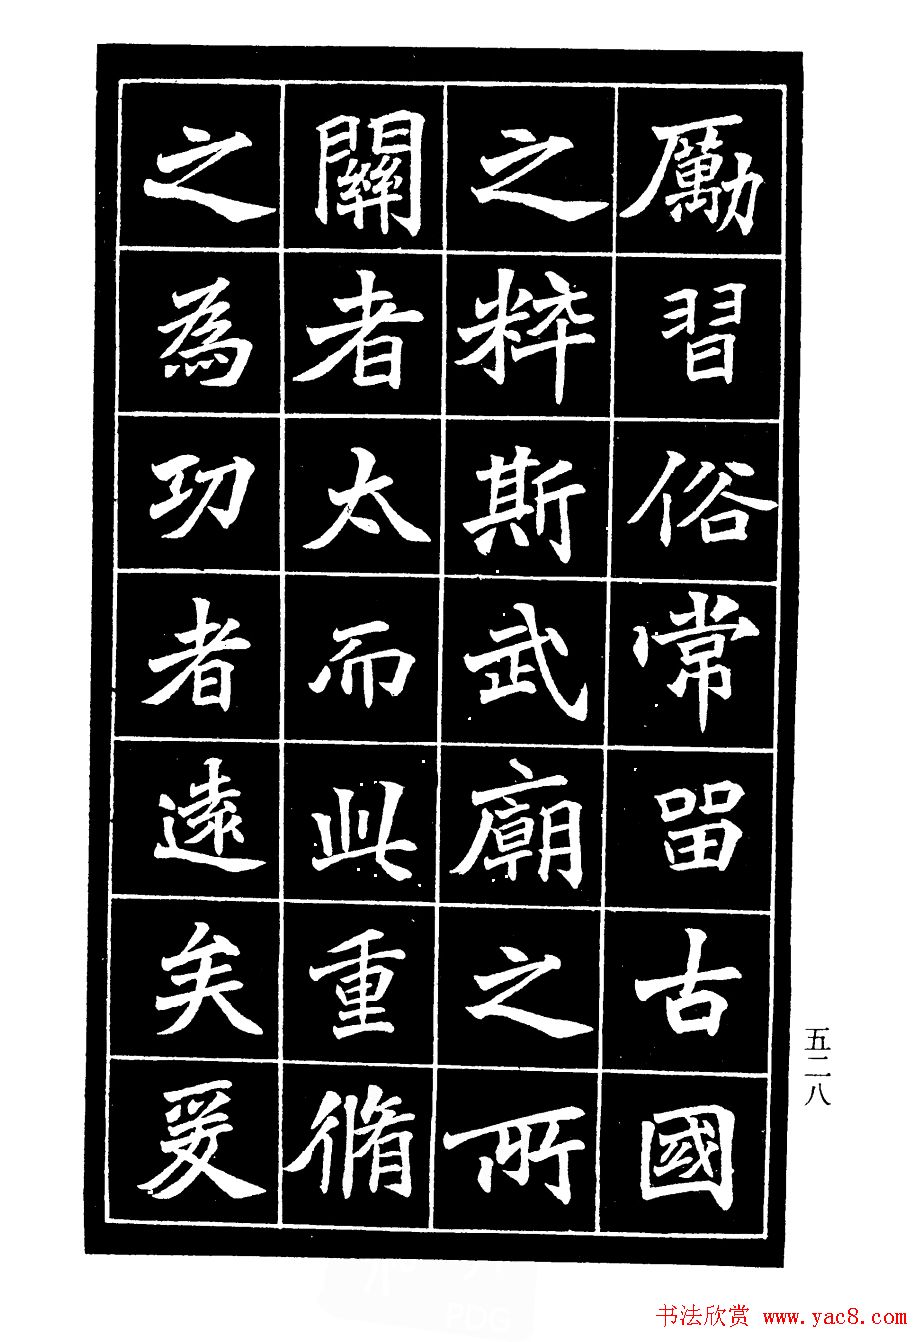 厲習俗常畱古國
之粹斯武廟之所
關者太而此重脩
之為功者遠矣爰
五二八
书法欣赏 www.yac8.com